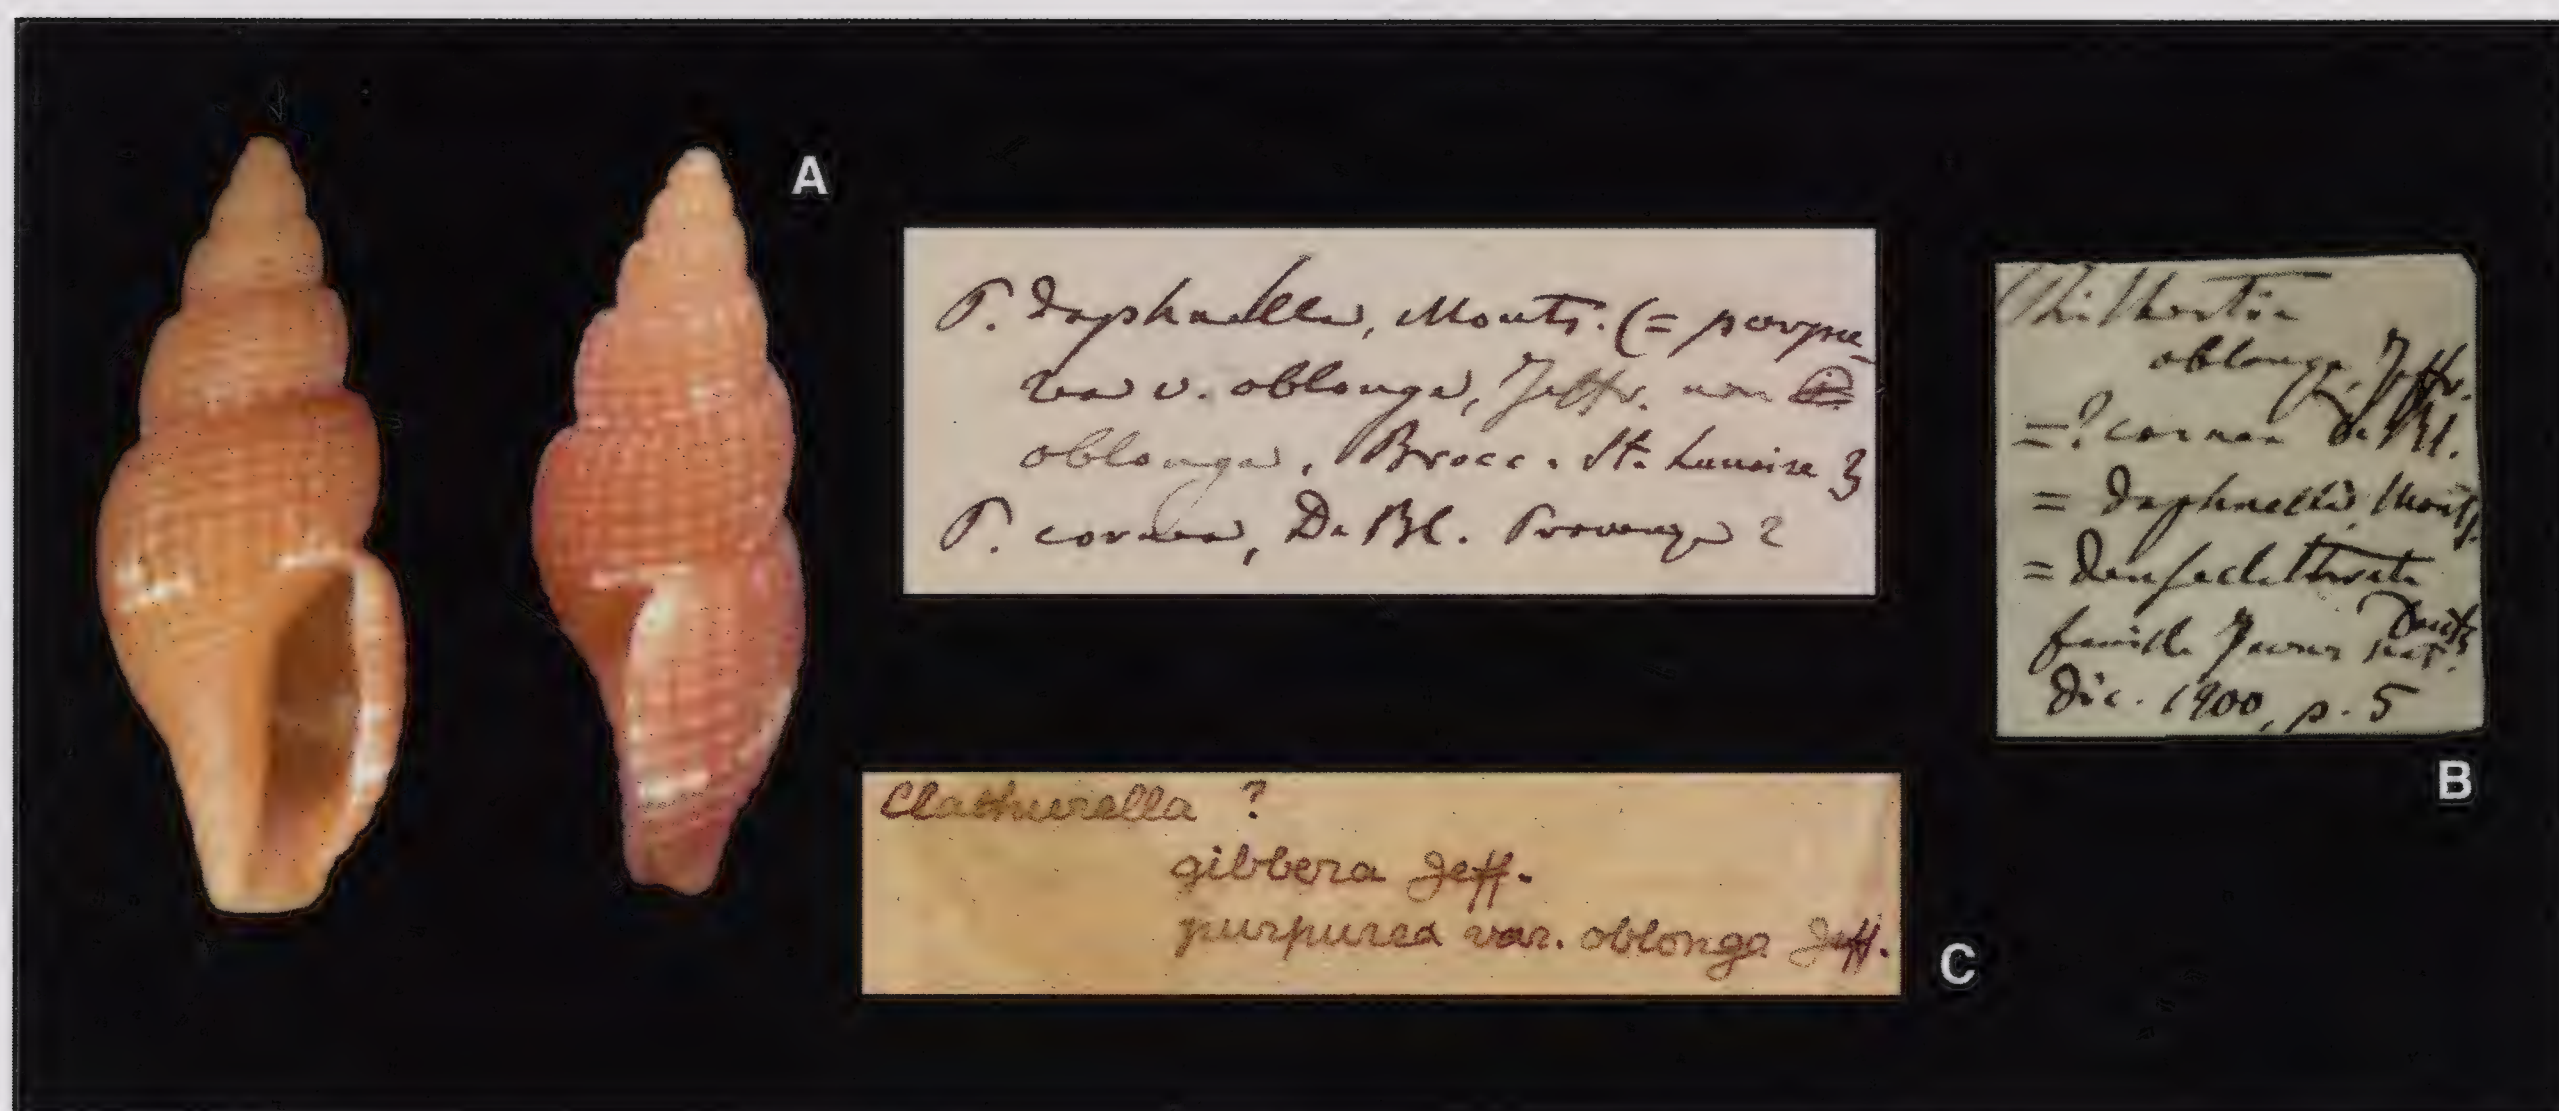 A
P. daphnella, Monts. (= purpu-
rea v. oblonga, Jeffr. non
oblonga, Brocc. St. Lunaire 3
P. cornea, De Bl. Provenza 2
Philbertia
oblonga, Jeffr.
=? cornea de Bl.
= daphnella Monts.
= densaclathrata
Dautz
feuille Jeunes nat.
Dic. 1900, p. 5
B
Clathurella ?
gibbera Jeff.
purpurea var. oblonga Jeff.
C